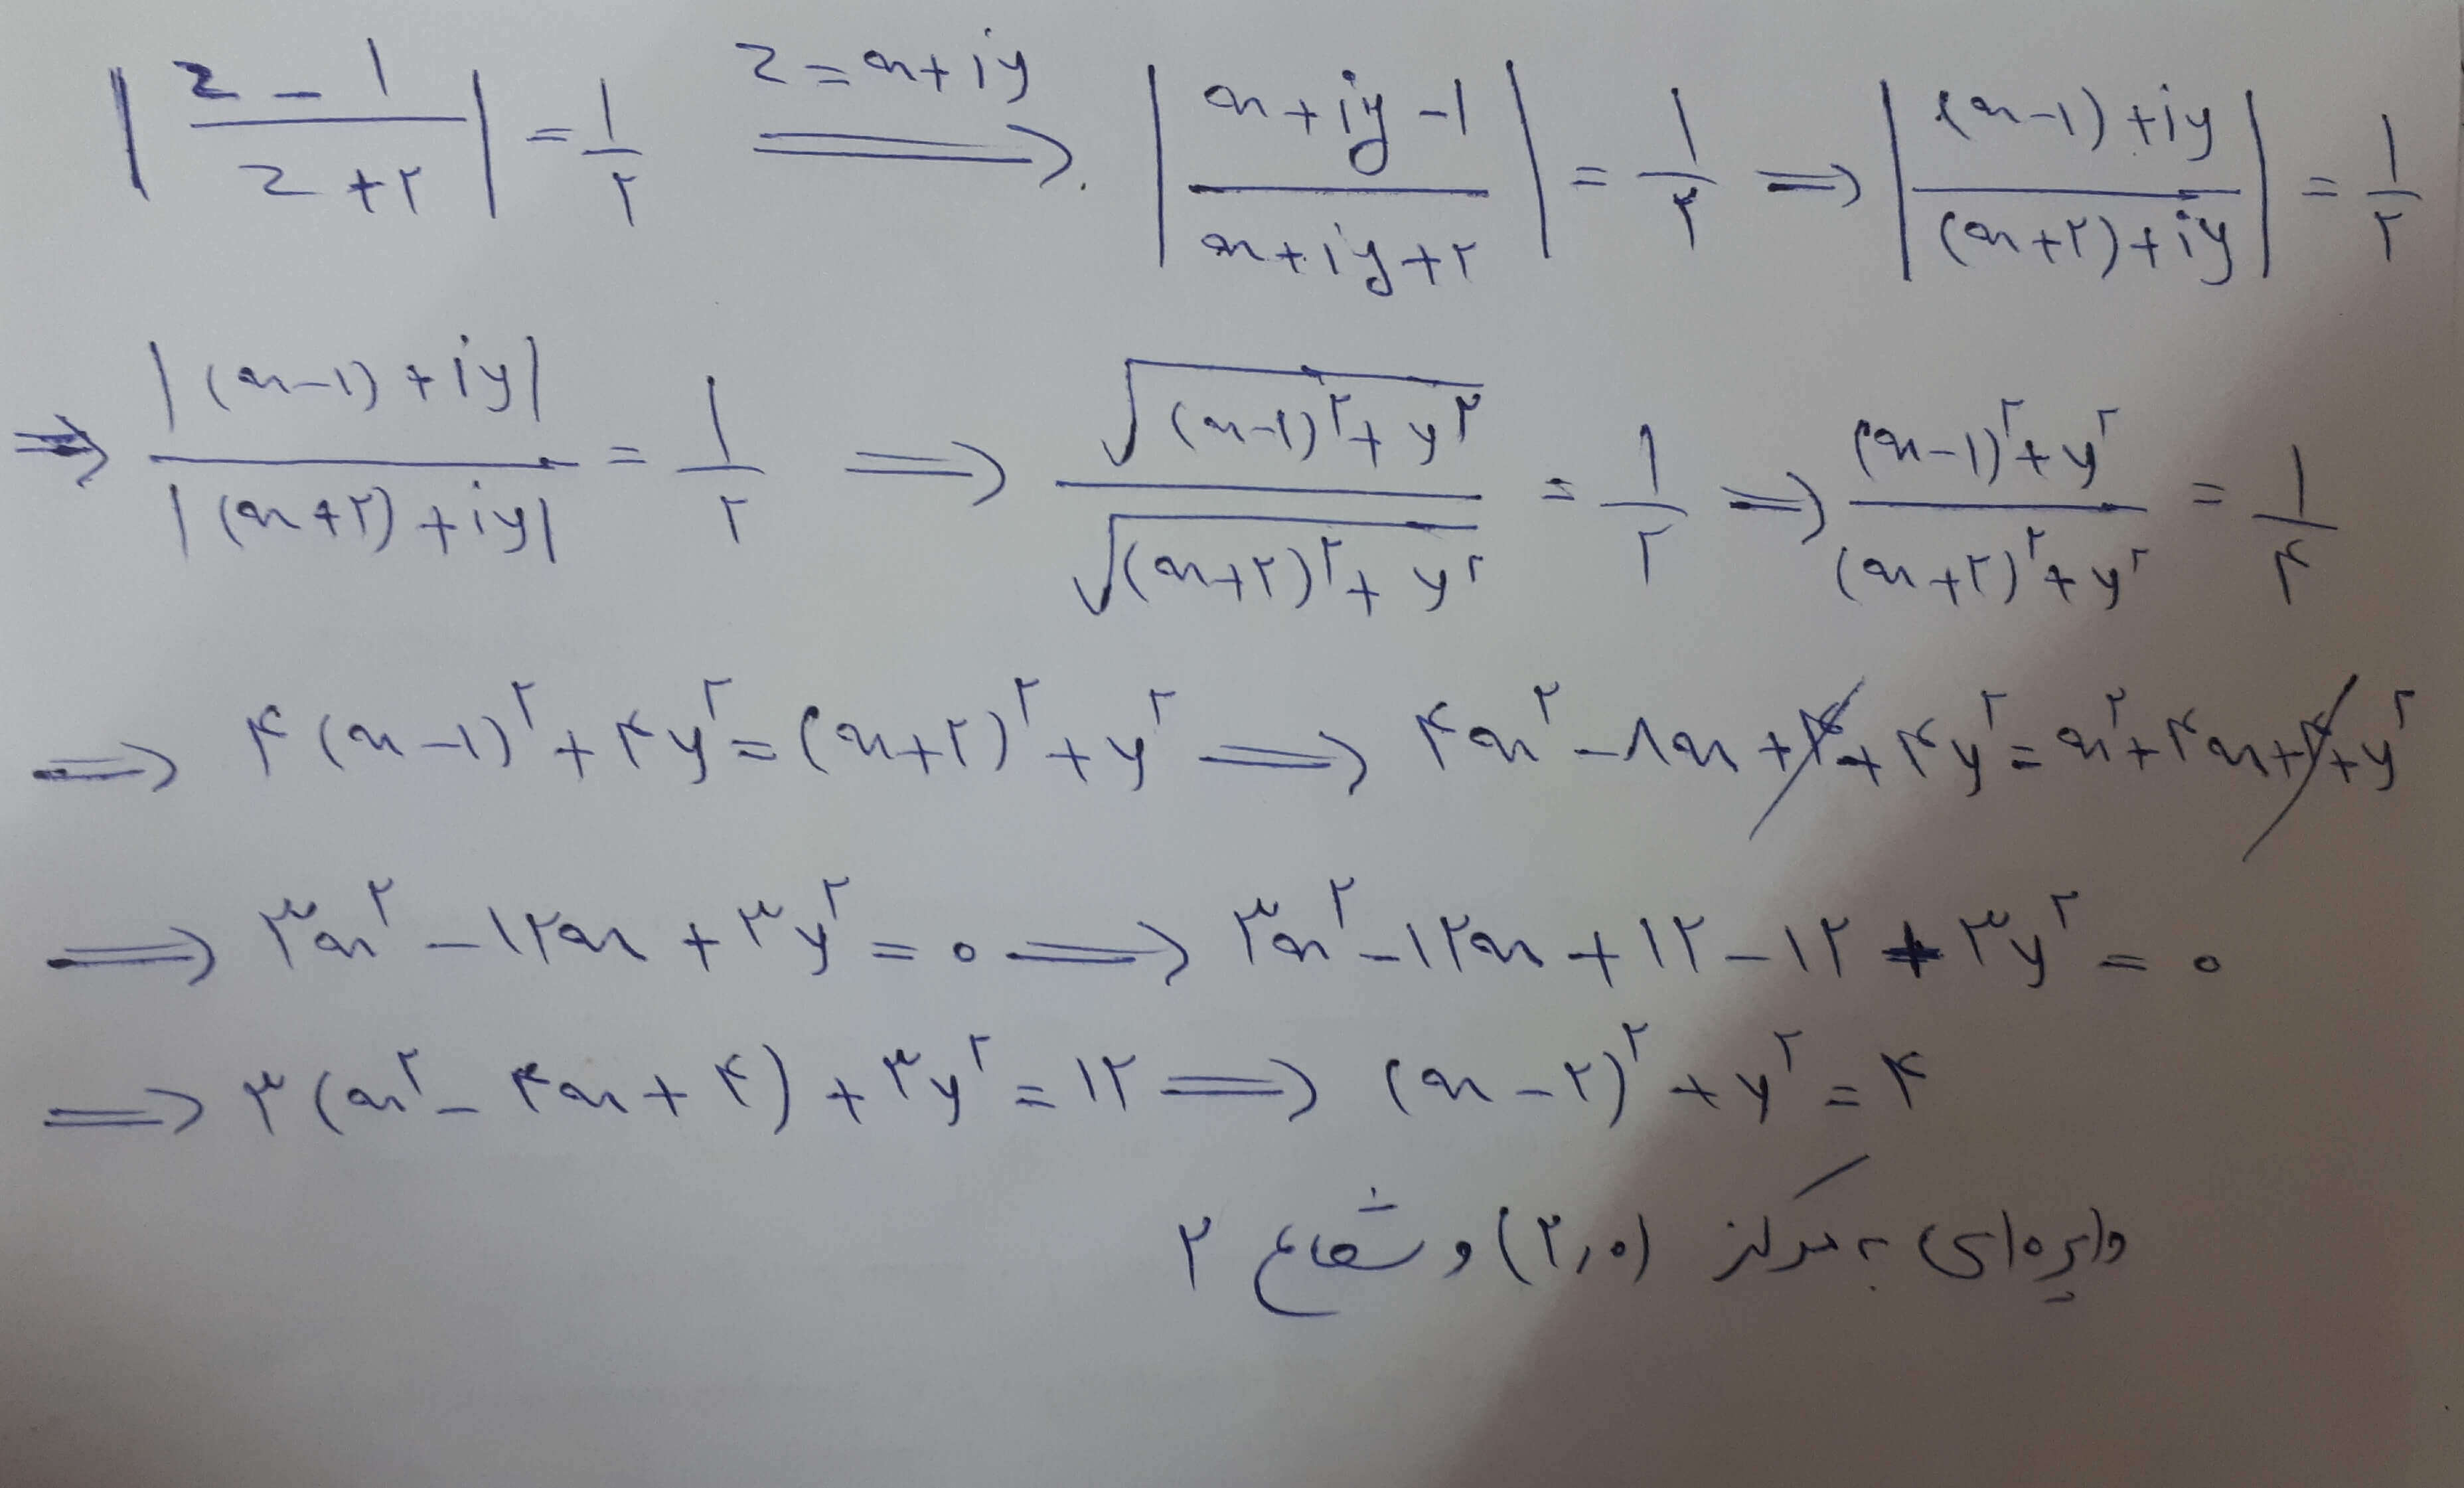 |z - 1 / z + ۲| = ۱/۲ ==z = x + iy==> |x + iy - 1 / x + iy + ۲| = ۱/۲ => |(x-1) + iy / (x+۲) + iy| = ۱/۲
=> |(x-1) + iy| / |(x+۲) + iy| = ۱/۲ => √((x-1)^۲ + y^۲) / √((x+۲)^۲ + y^۲) = ۱/۲ => (x-1)^۲ + y^۲ / (x+۲)^۲ + y^۲ = ۱/۴
=> ۴(x-1)^۲ + ۴y^۲ = (x+۲)^۲ + y^۲ => ۴x^۲ - ۸x + ۴ + ۴y^۲ = x^۲ + ۴x + ۴ + y^۲
=> ۳x^۲ - ۱۲x + ۳y^۲ = ۰ => ۳x^۲ - ۱۲x + ۱۲ - ۱۲ + ۳y^۲ = ۰
=> ۳(x^۲ - ۴x + ۴) + ۳y^۲ = ۱۲ => (x - ۲)^۲ + y^۲ = ۴
دایره‌ای به مرکز (۲,۰) و شعاع ۲